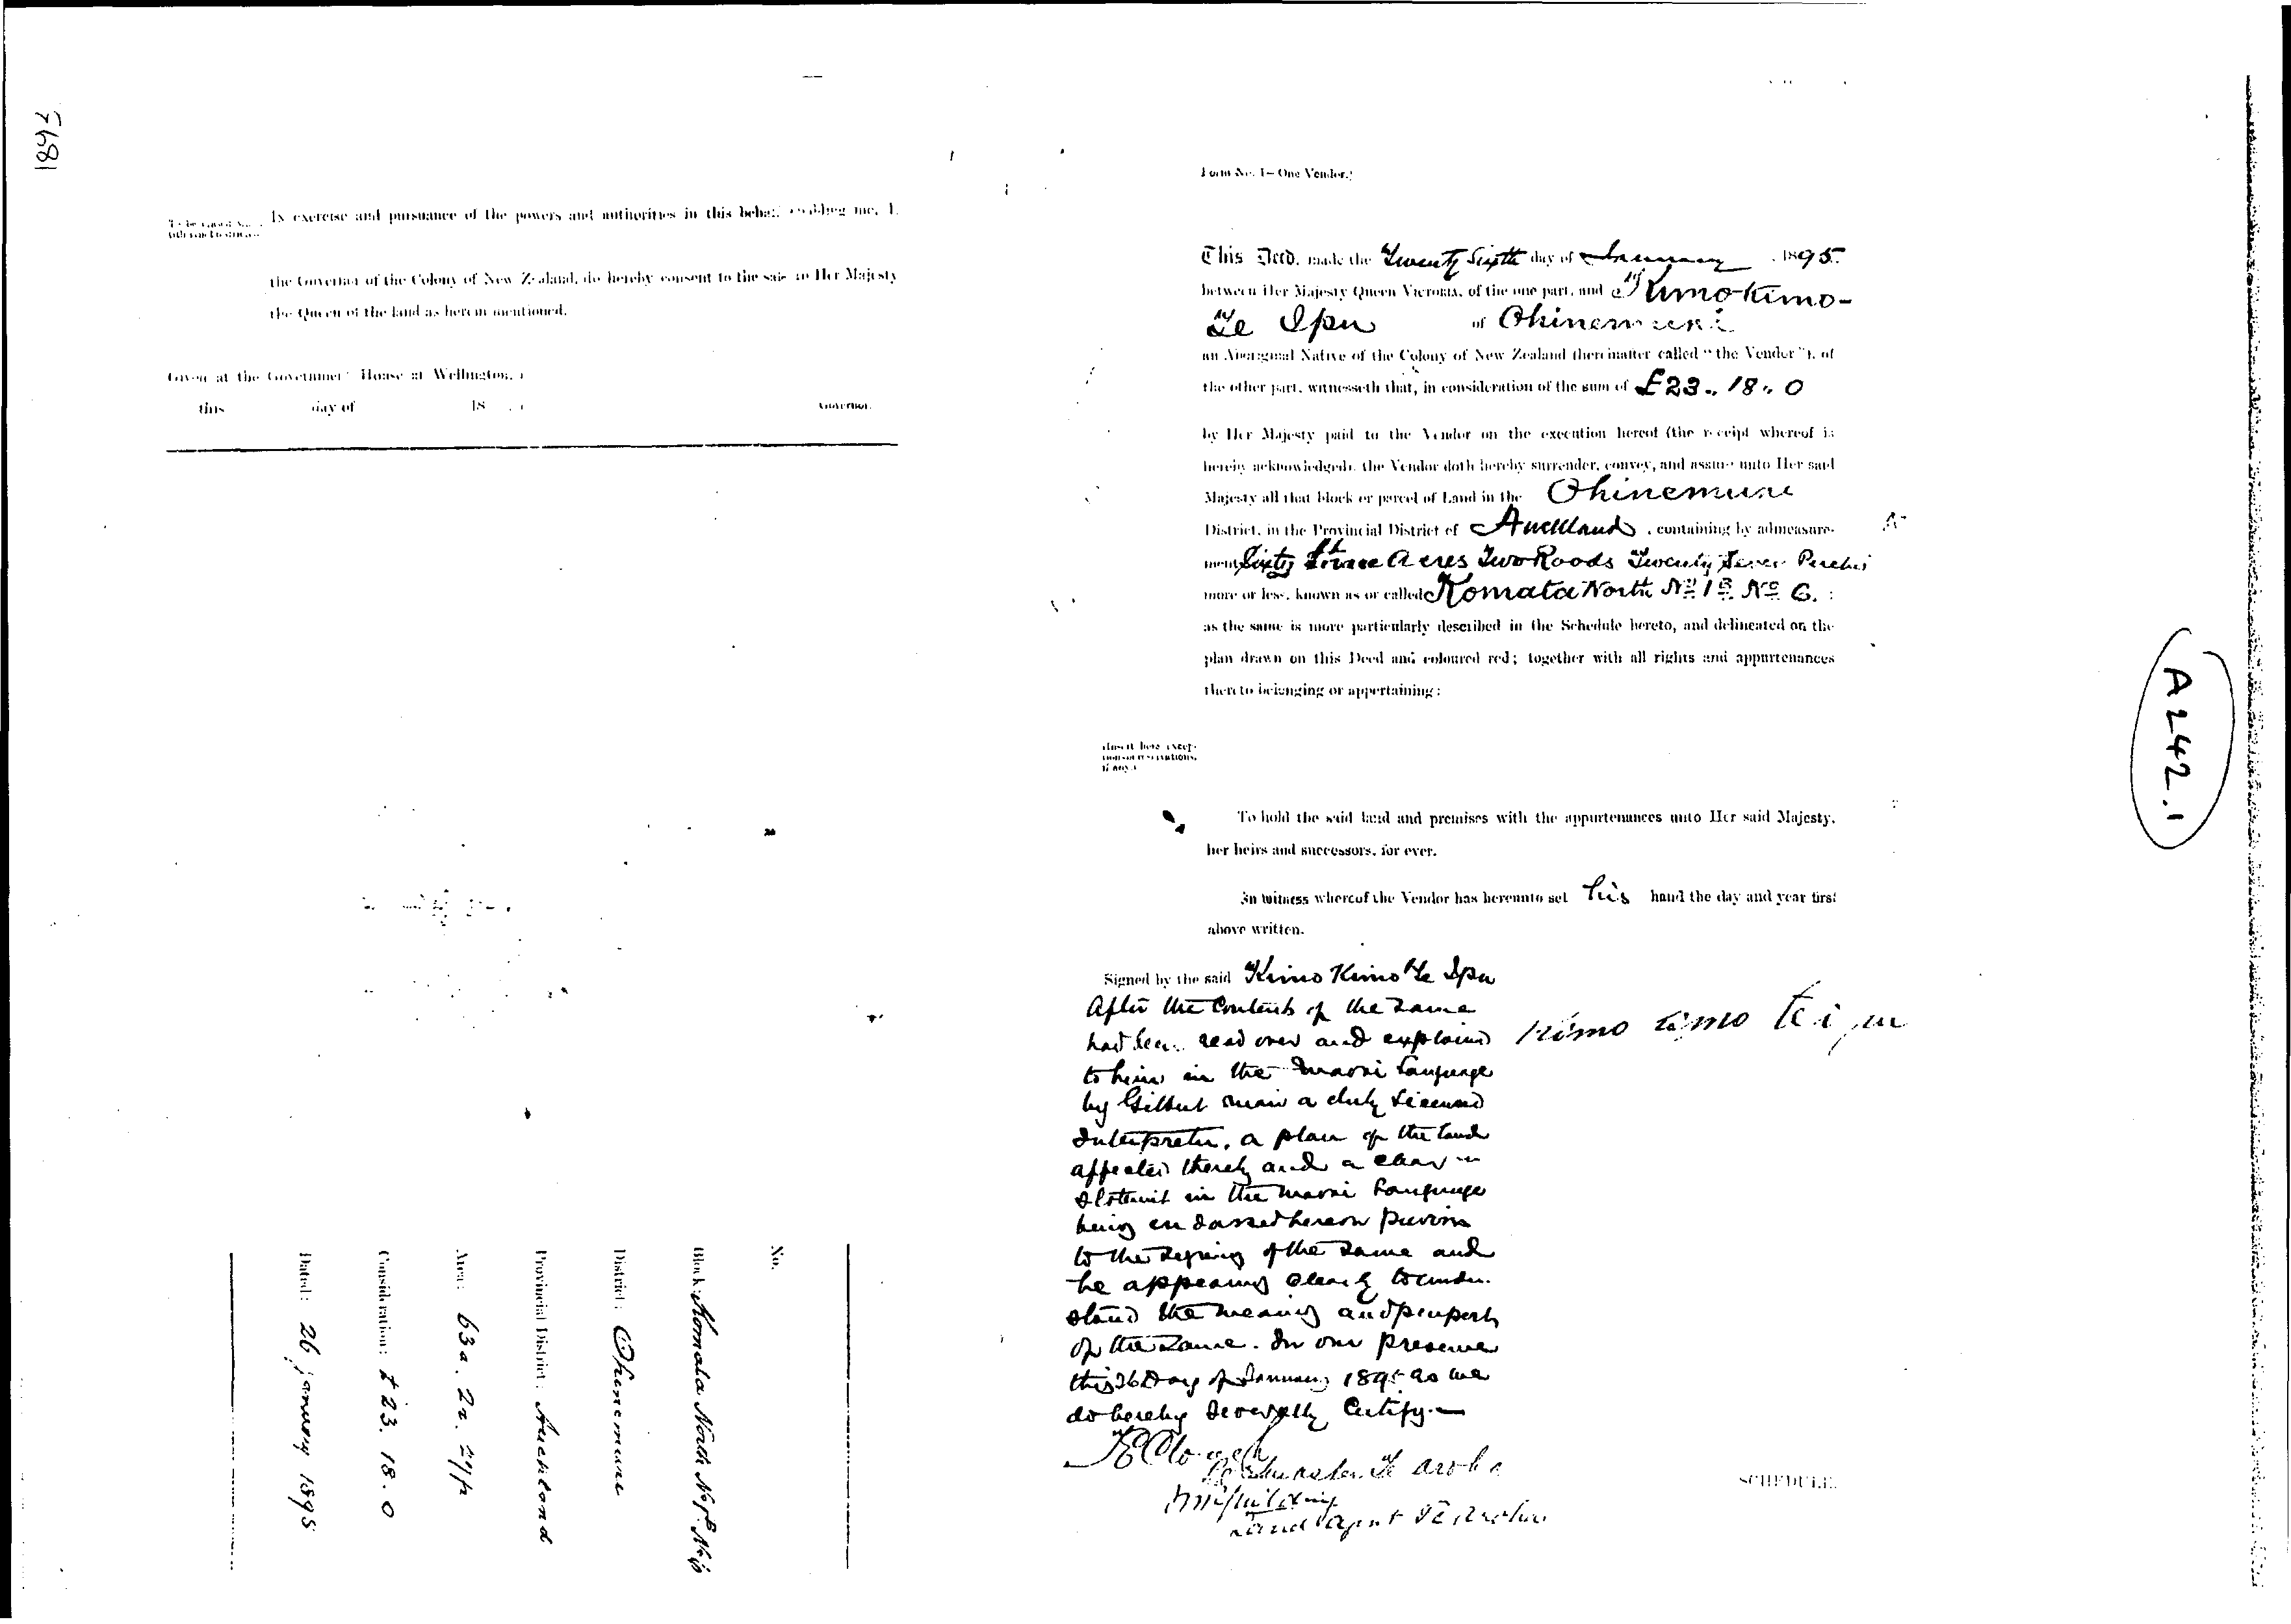 1895
In exercise and pursuance of the powers and authorities in this behalf enabling me, I,
the Governor of the Colony of New Zealand, do hereby consent to the sale to Her Majesty
the Queen of the land as herein mentioned.
Given at the Government House at Wellington,
this day of 18
Governor.
No.
Block: Komata North No 1B No 6
District: Ohinemuri
Provincial District: Auckland
Area: 63a. 2r. 27p
Consideration: £23. 18. 0
Dated: 26 January 1895
Form No. 1—One Vendor.
This Deed, made the Twenty Sixth day of January 1895
between Her Majesty Queen Victoria, of the one part, and Kimo Kimo-
Te Ipu of Ohinemuri
an Aboriginal Native of the Colony of New Zealand (hereinafter called "the Vendor"), of
the other part, witnesseth that, in consideration of the sum of £23.. 18.. 0
by Her Majesty paid to the Vendor on the execution hereof (the receipt whereof is
hereby acknowledged), the Vendor doth hereby surrender, convey, and assure unto Her said
Majesty all that block or parcel of Land in the Ohinemuri
District, in the Provincial District of Auckland, containing by admeasure-
ment Sixty three Acres Two Roods Twenty Seven Perches
more or less, known as or called Komata North No 1B No 6.
as the same is more particularly described in the Schedule hereto, and delineated on the
plan drawn on this Deed and coloured red; together with all rights and appurtenances
thereto belonging or appertaining:
(Insert here excep-
tions or reservations,
if any.)
To hold the said land and premises with the appurtenances unto Her said Majesty,
her heirs and successors, for ever.
In witness whereof the Vendor has hereunto set his hand the day and year first
above written.
Signed by the said Kimo Kimo Te Ipu
After the Contents of the same
had been read over and explained
to him in the Maori Language
by Gilbert Mair a duly Licensed
Interpreter, a plan of the land
affected thereby and a clear
statement in the Maori Language
being endorsed hereon previous
to the signing of the same and
he appearing clearly to under-
stand the meaning and purport
of the same. In our presence
this 26 Day of January 1895 as we
do hereby severally Certify.—
Kimo Kimo te ipu
Postmaster Te Aroha
Land Agent Te Aroha
SCHEDULE.
A242.1